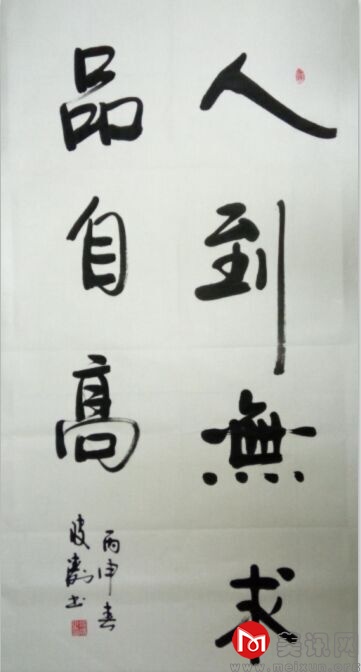 人到無求
品自高
丙申春
美讯网
www.meixun